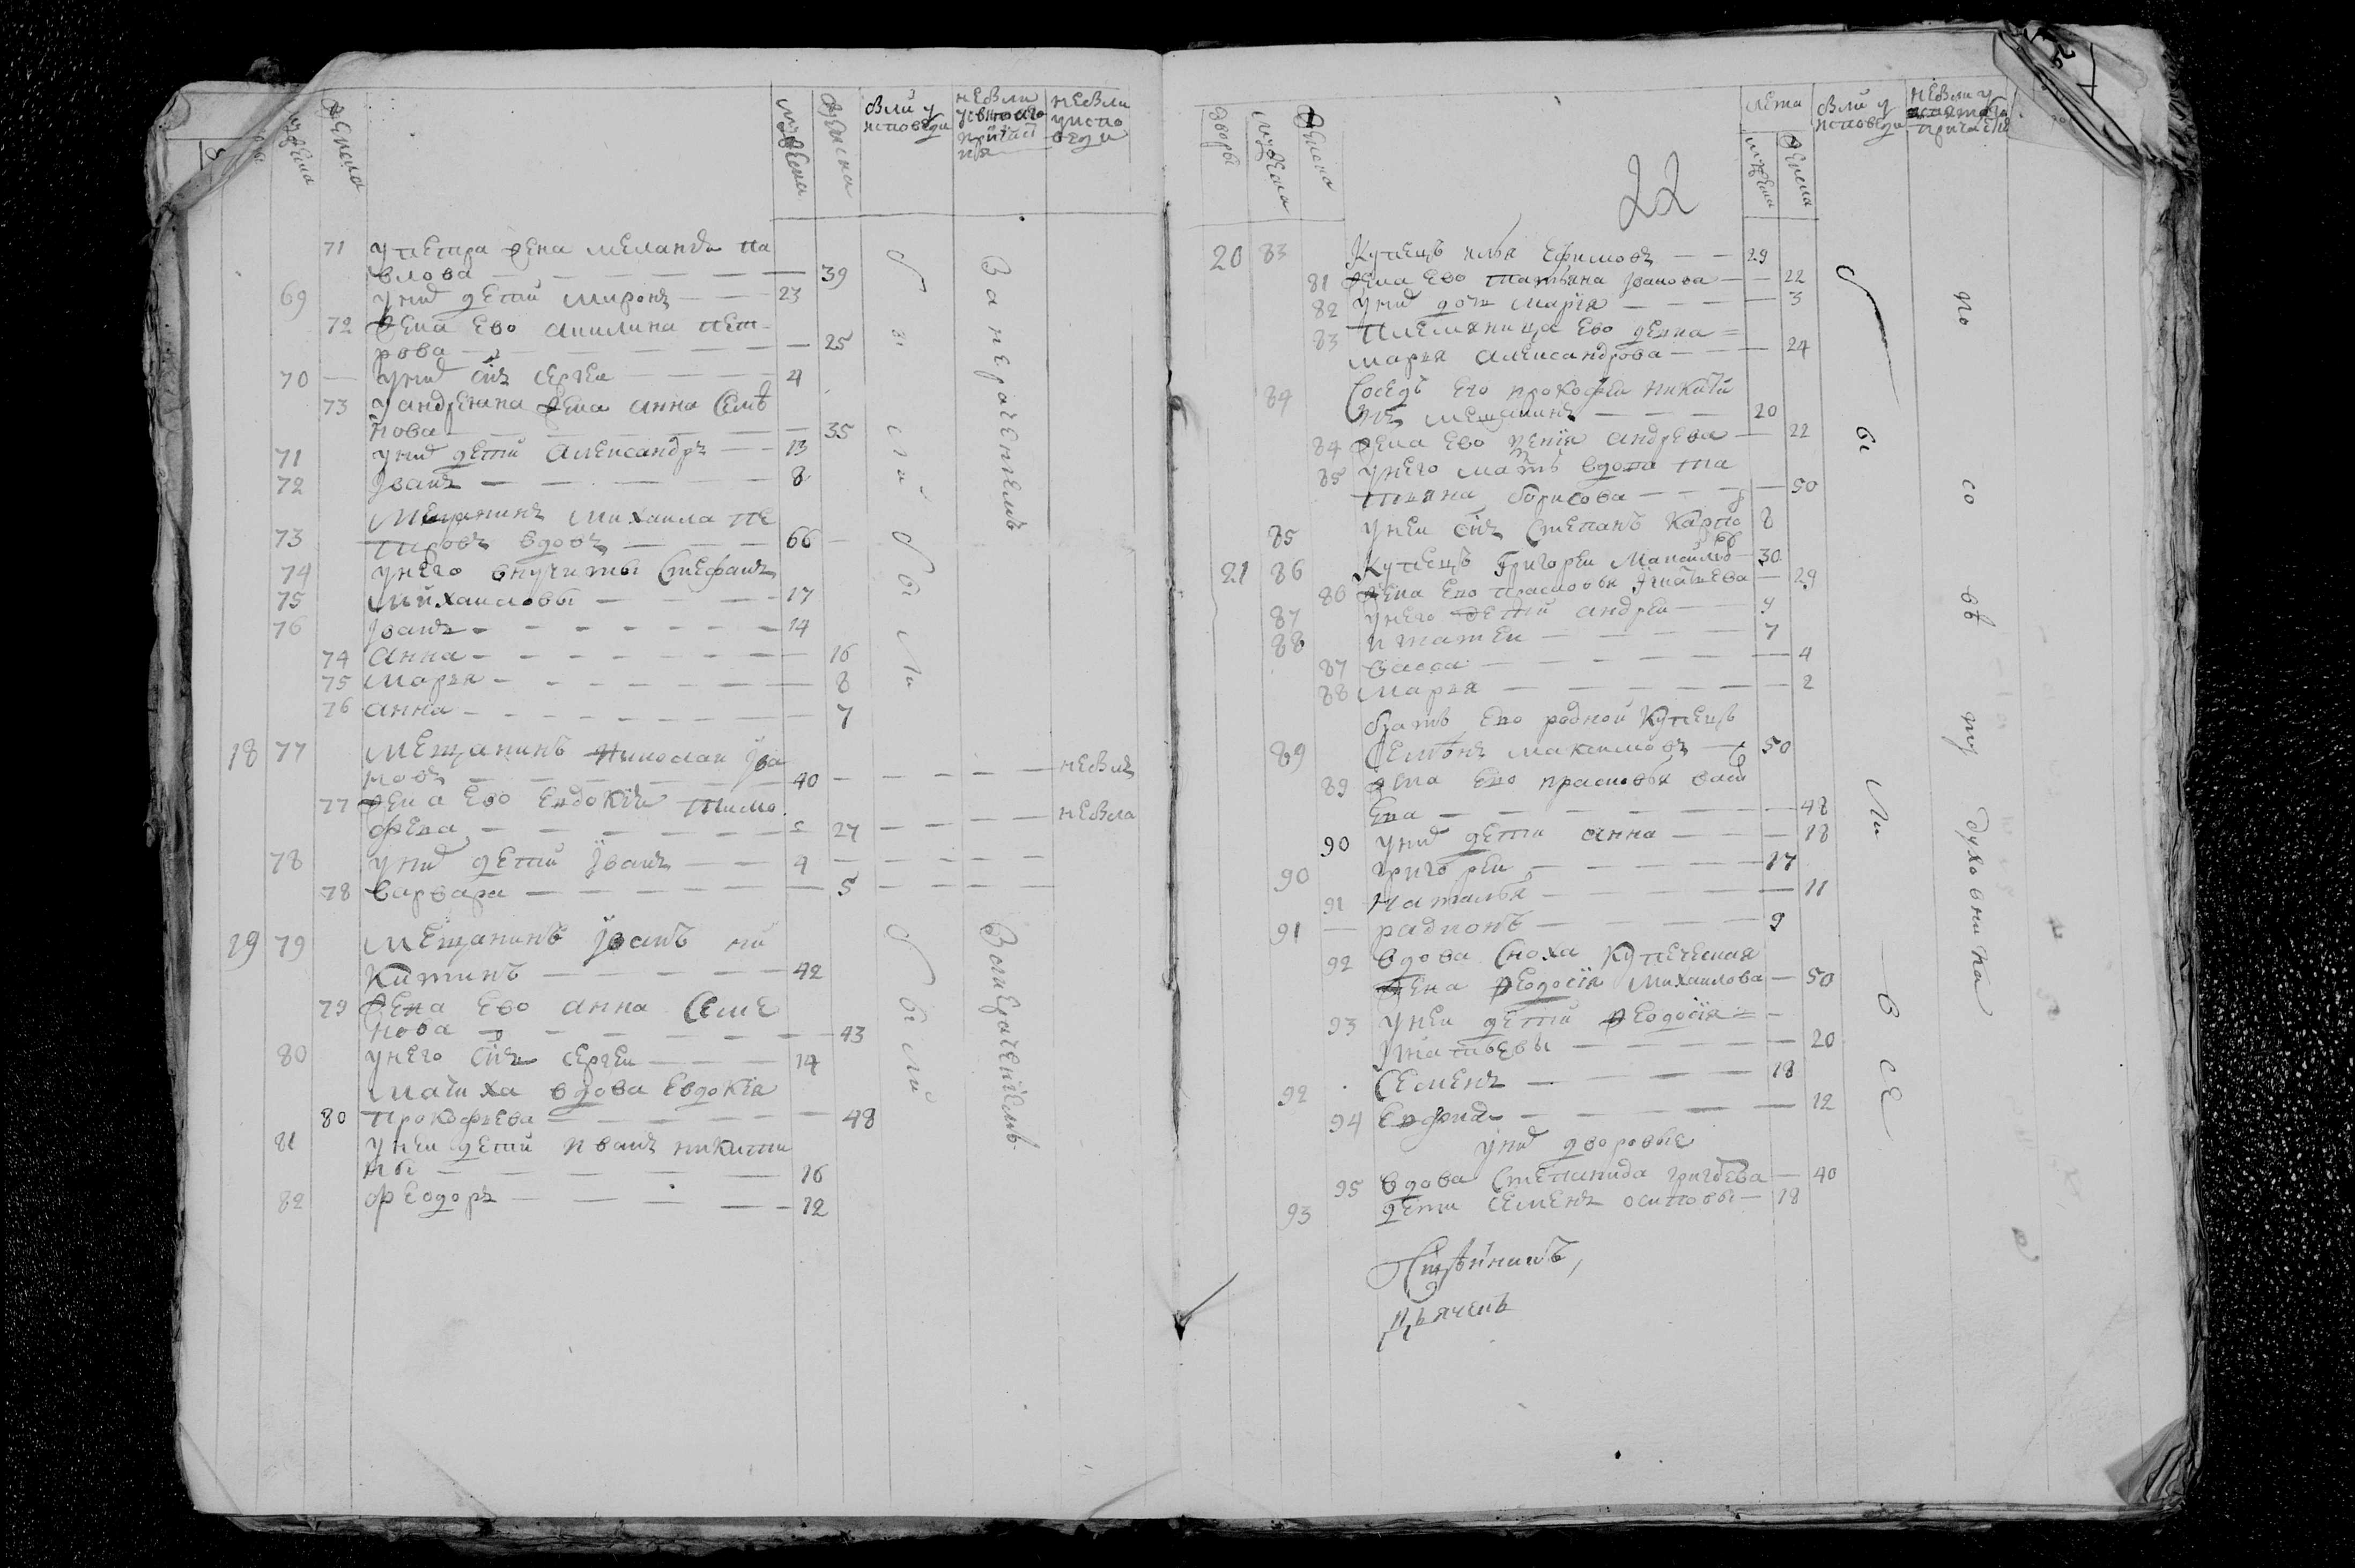 мужеска
женска
мужеска
женска
были у исповеди
не были у святаго причастия
не были у исповеди
71 у петра жена меланья па
влова — 39
69 у них дети миронъ — 23
72 жена ево акилина пет
рова — 25
70 — у них снъ сергеи — 4
73 у андреяна жена анна семѣ
нова — 35
71 у них дети александръ — 13
72 Iванъ — 8
Мещанинъ михаила пе
73 тровъ вдовъ — 66
74 у него внучиты Стефанъ
75 михаиловы — 17
76 Iванъ — 14
74 анна — 16
75 марья — 8
76 анна — 7
18 77 Мещанинъ николаи Iва
новъ — 40 — не былъ
77 жена ево евдокия тимо
феева — 27 — не была
78 у них дети Iванъ — 4
78 варвара — 5
19 79 Мещанинъ Iванъ ни
китинъ — 42
79 жена ево анна Семе
нова — 43
80 у него снъ сергеи — 14
мачиха вдова евдокiя
80 прокофьева — 48
81 у неи дети иванъ никити
ны — 16
82 феодоръ — 12
были были
За перачениемъ
были
Зам
22
дворы
мужеска
женска
лета
мужеска
женска
были у исповеди
не были у
20 83 Купецъ илья ефимовъ — 29
81 жена ево татьяна Iванова — 22
82 у них дочь марiя — 3
83 племяница ево девка =
марья александрова — 24
84 Соседъ его прокофеи никити
нъ мещанинъ — 20
84 жена ево ксенiя андреева — 22
85 у него мать вдова та
тияна борисова — 50
85 у неи снъ Степанъ карпо 8
21 86 Купецъ Григореи — 30
86 жена ево прасковья игнатьева — 29
87 у него дети андреи — 9
88 игнатеи — 7
87 васса — 4
88 марья — 2
братъ ево родной купецъ
89 Семѣнъ максимовъ — 50
89 жена ево прасковья васи
ева — 48
90 у них дети анна — 18
90 григореи — 17
91 наталья — 11
91 — радионъ — 9
92 вдова сноха купеческая
жена феодосiя михаилова — 50
93 у неи дети феодосiя =
игнатьевы — 20
92 Семенъ — 18
94 — 12
у них дворовые
95 вдова Степанида григоева — 40
93 дети семенъ осиповы — 18
были все
по совѣту духовника